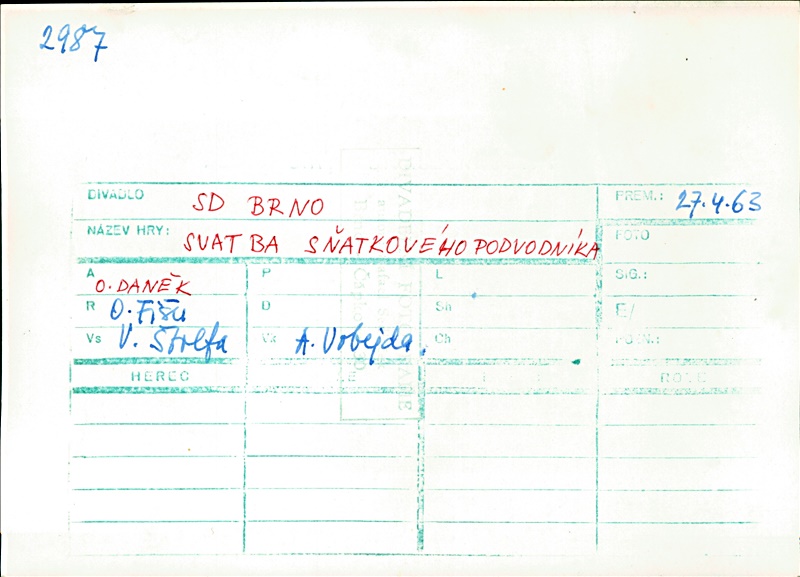 2987
DIVADLO SD BRNO PREM.: 27.4.63
NÁZEV HRY: SVATBA SŇATKOVÉHO PODVODNÍKA FOTO
A O. DANĚK P L SIG.:
R O. Fišer D Sh E/
Vs V. Štolfa Vk A. Vobejda. Ch POZN.:
HEREC ROLE